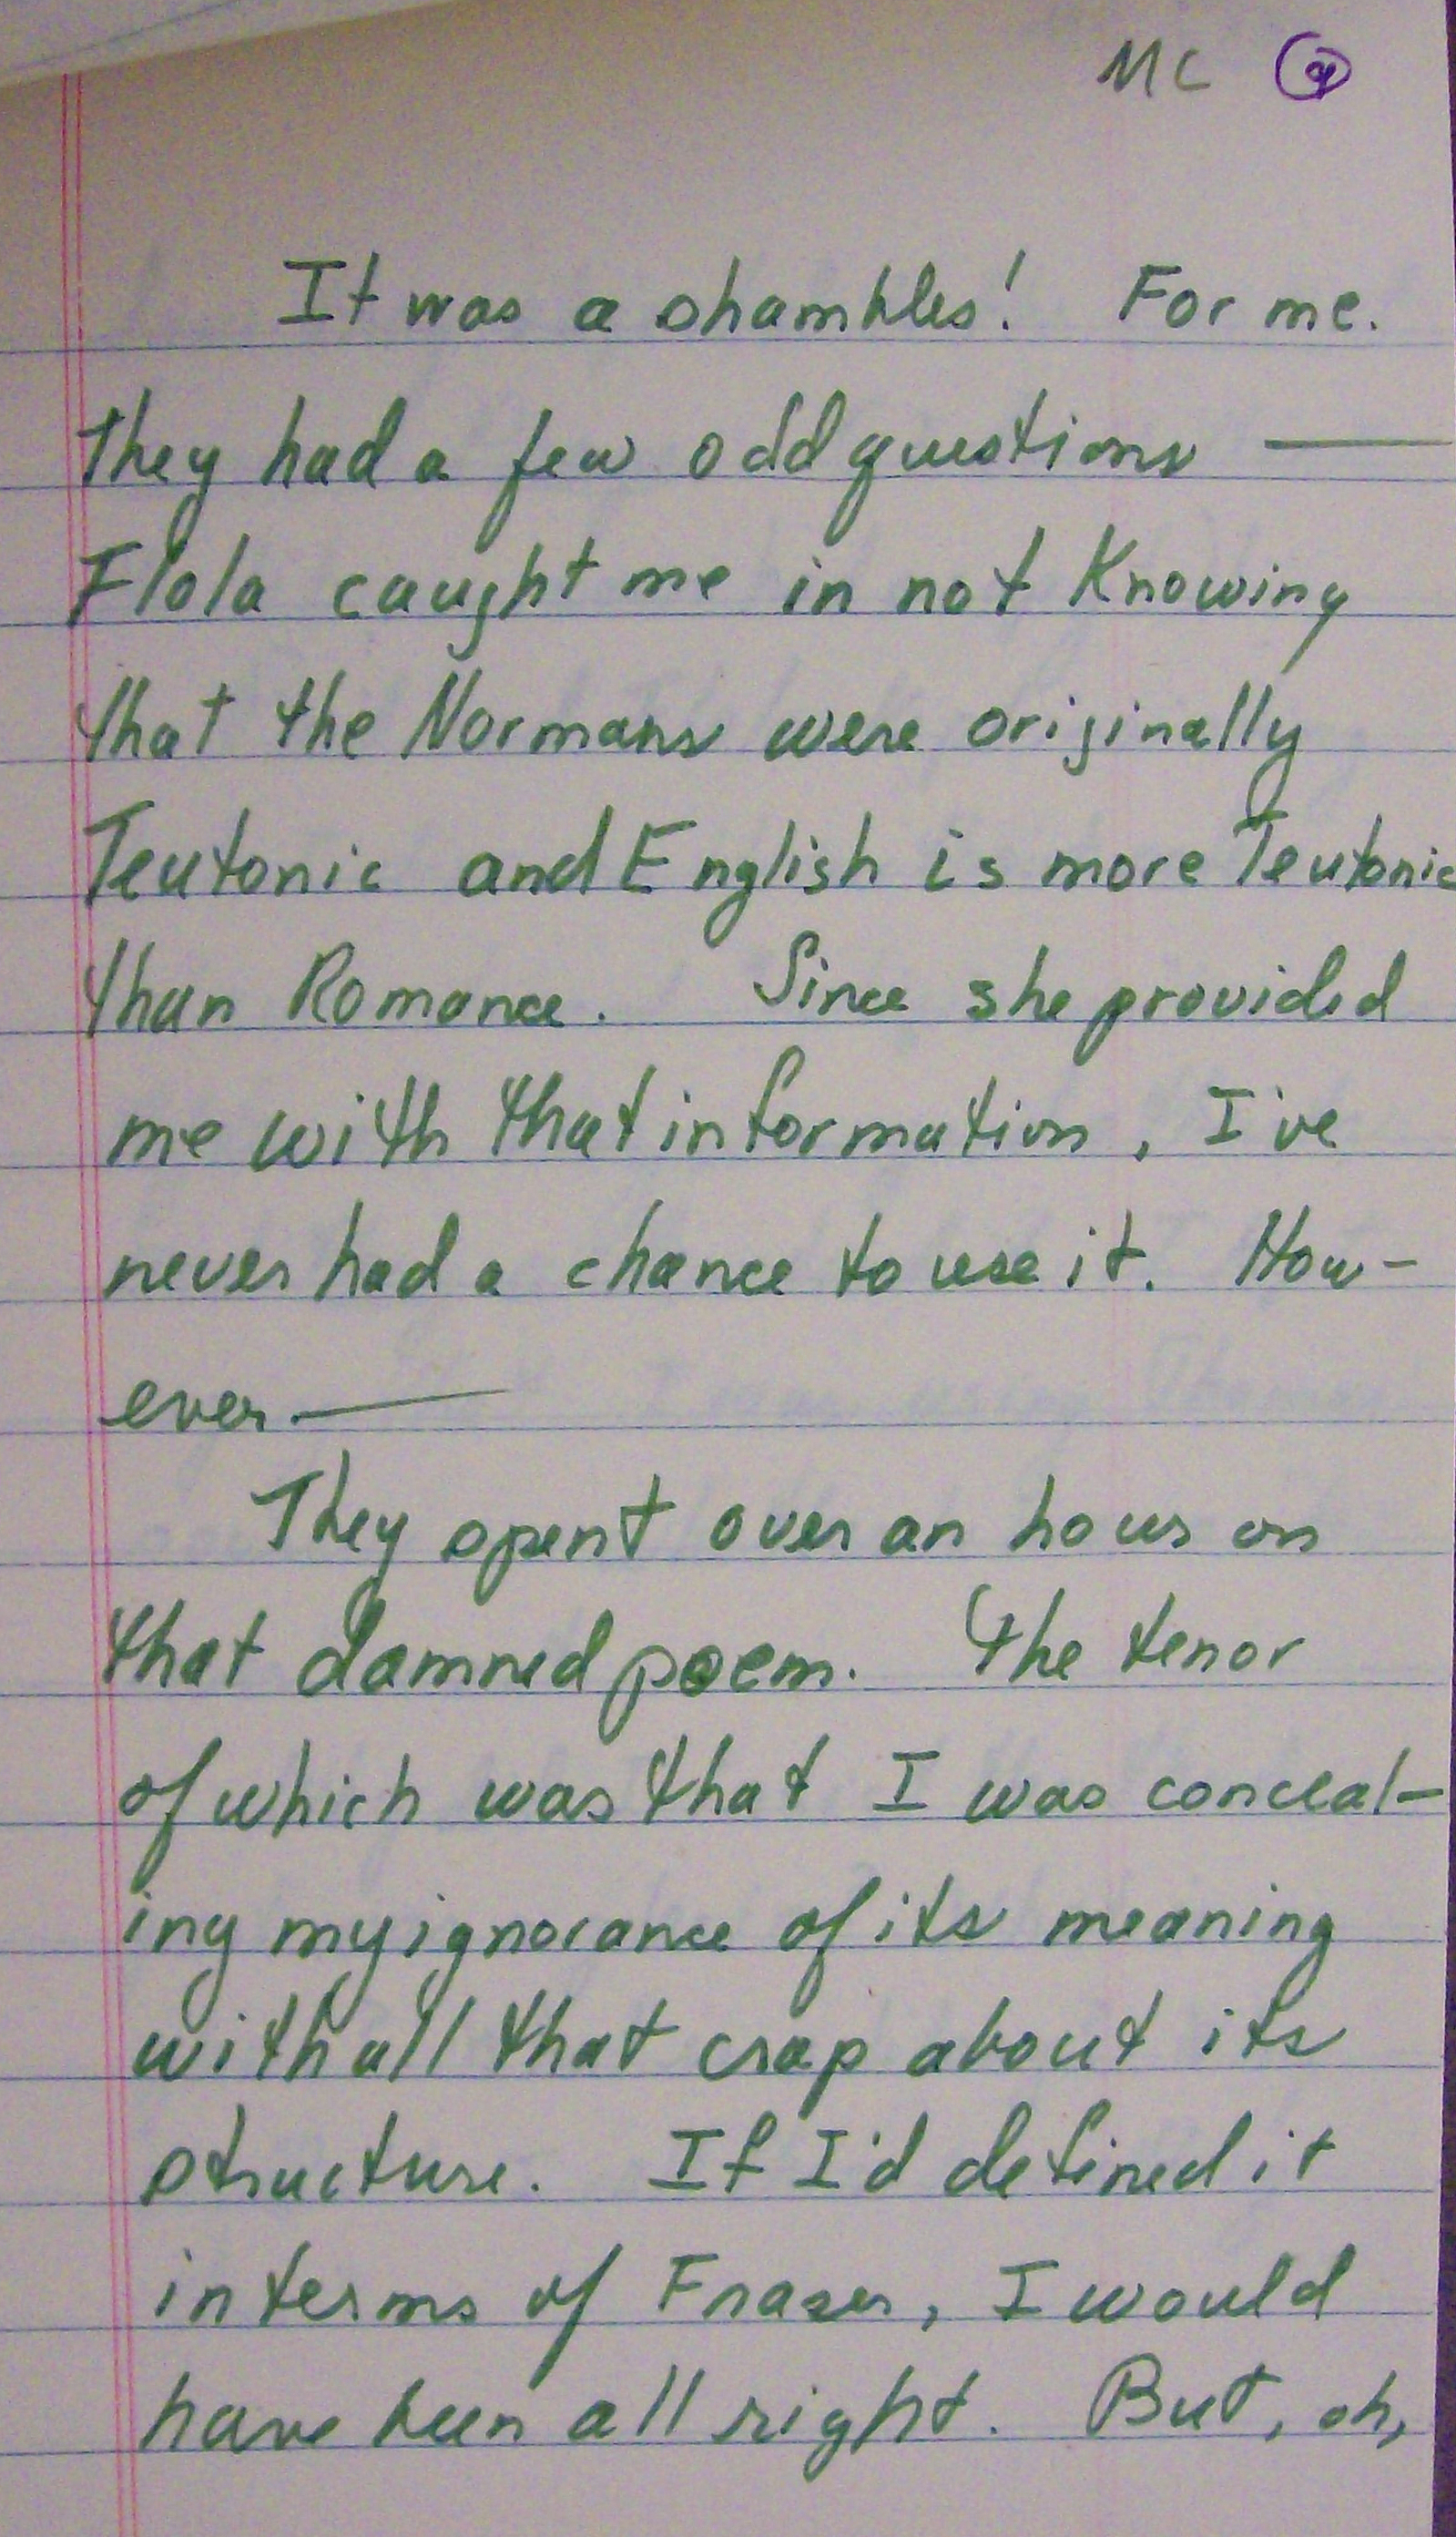 MC
It was a shambles! For me.
They had a few odd questions —
Flola caught me in not Knowing
that the Normans were originally
Teutonic and English is more Teutonic
than Romance. Since she provided
me with that information, I've
never had a chance to use it. How-
ever. —
They spent over an hour on
that damned poem. The tenor
of which was that I was conceal-
ing my ignorance of its meaning
with all that crap about its
structure. If I'd defined it
in terms of Fraser, I would
have been all right. But, oh,